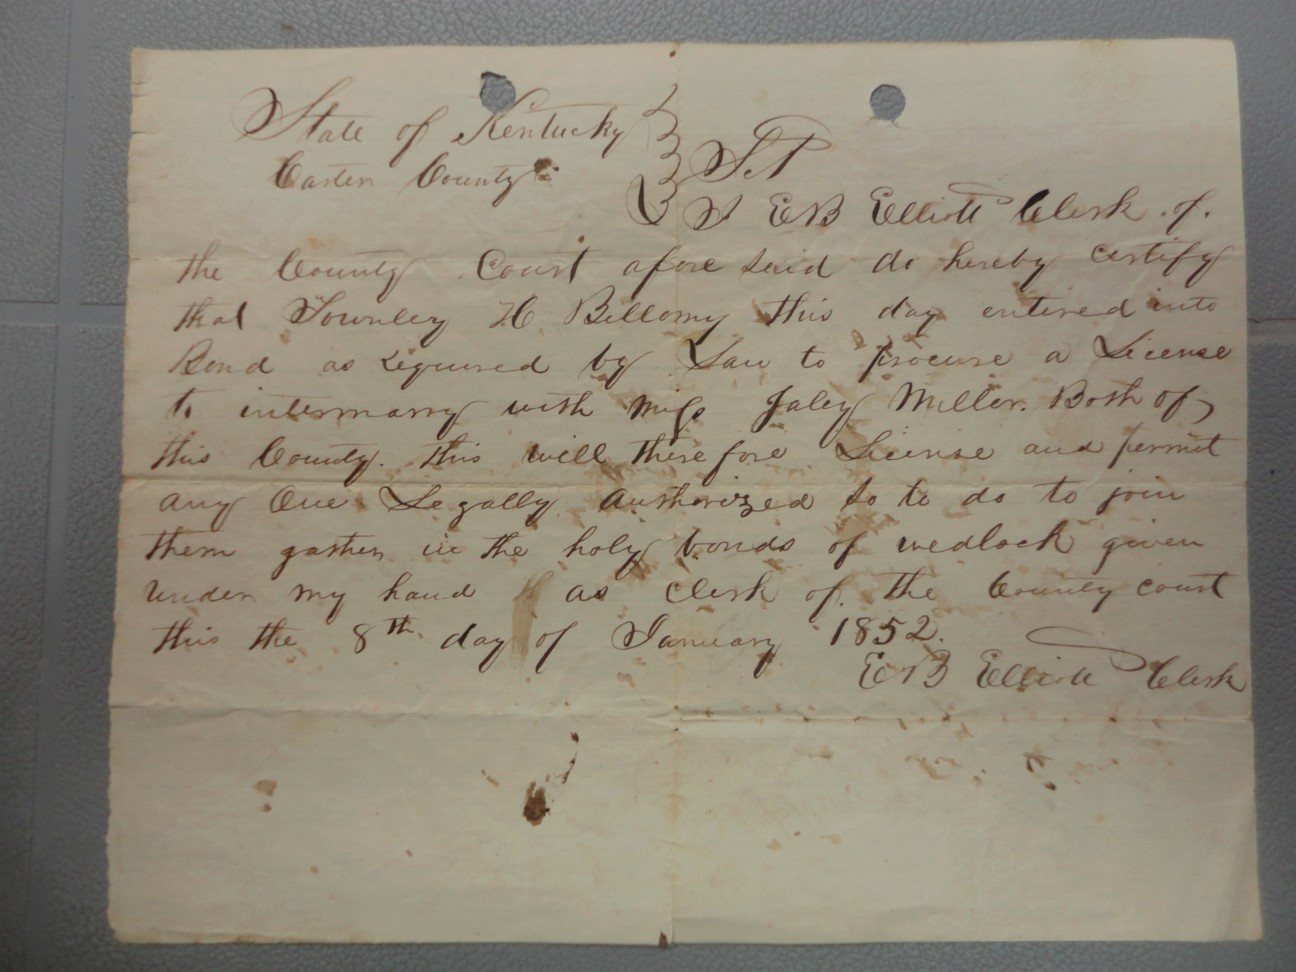 State of Kentucky
Carter County Sct
I E B Elliott Clerk of.
the County Court afore said do hereby certify
that Townley H Bellomy this day entired into
Bond as required by Law to procure a License
to intermarry with Miss Jaley Miller. Both of
this County. this will therefore License and permit
any One Legally authorized so to do to join
them gather in the holy bonds of wedlock given
under my hand as clerk of. the County court
this the 8th day of January 1852.
E B Elliott Clerk